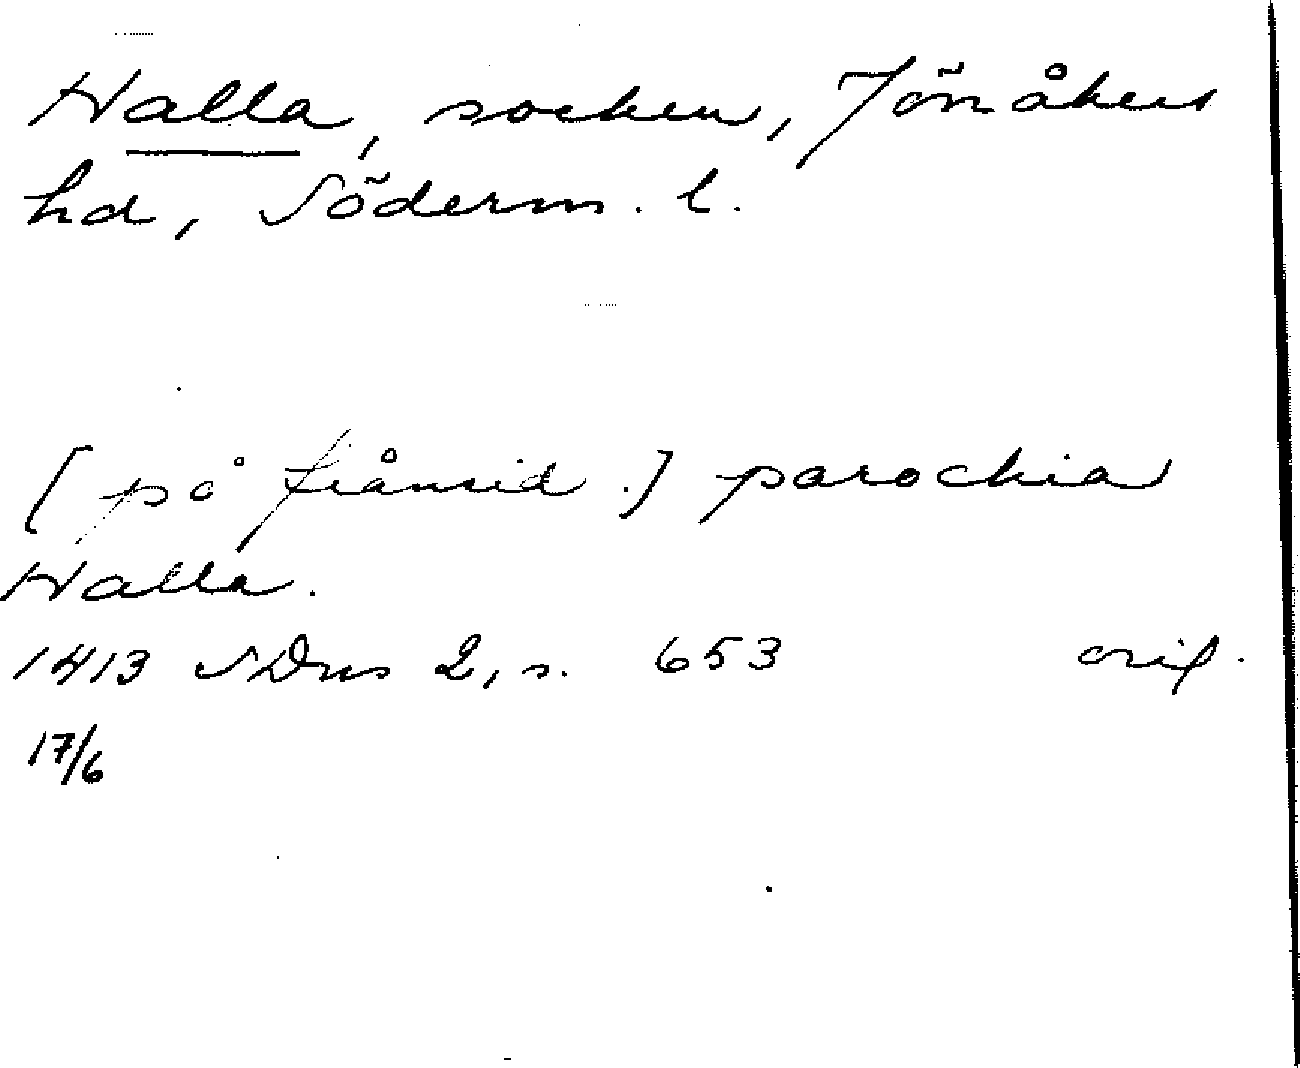 Halla, socken, Jönåkers
hd, Söderm. l.
[på frånsid.] parochia
Halla.
1413 SDns 2, s. 653 orig.
17/6